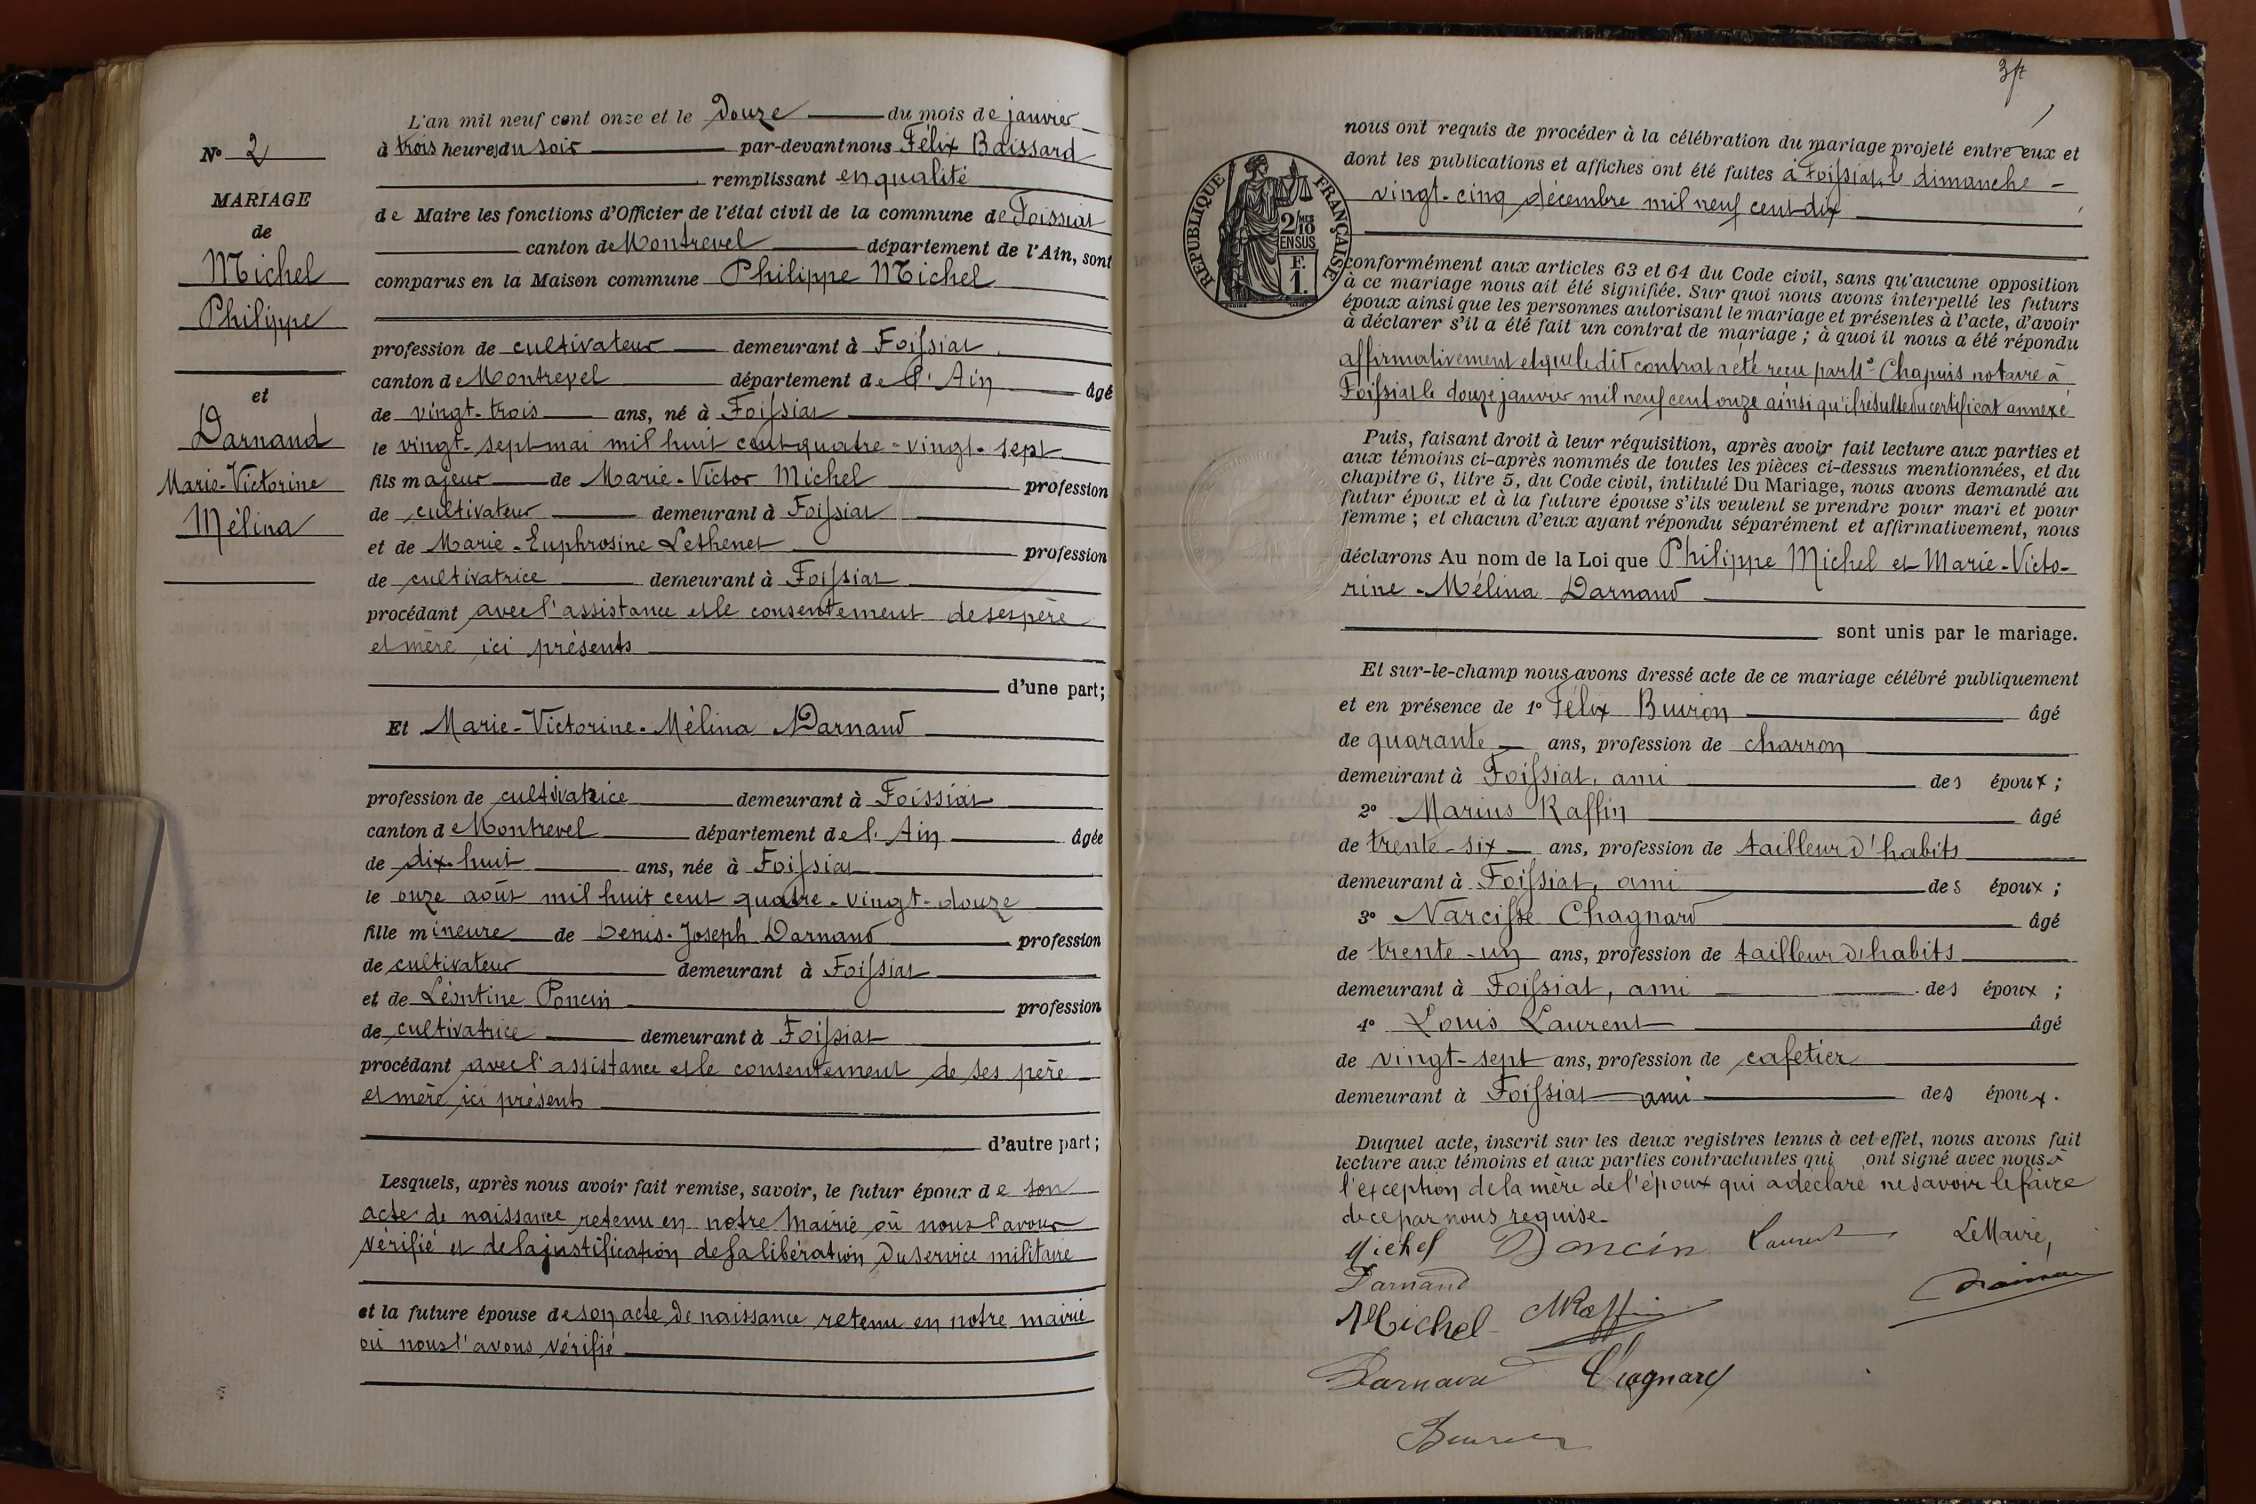 N° 2
MARIAGE
de
Michel
Philippe
et
Darnand
Marie-Victorine
Mélina
L'an mil neuf cent onze et le douze du mois de janvier
à trois heures du soir par-devant nous Félix Boissard
remplissant en qualité
de Maire les fonctions d'Officier de l'état civil de la commune de Foissiat
canton de Montrevel département de l'Ain, sont
comparus en la Maison commune Philippe Michel
profession de cultivateur demeurant à Foissiat
canton de Montrevel département de l'Ain âgé
de vingt-trois ans, né à Foissiat
le vingt-sept mai mil huit cent quatre-vingt-sept
fils majeur de Marie-Victor Michel profession
de cultivateur demeurant à Foissiat
et de Marie-Euphrosine Lethenet profession
de cultivatrice demeurant à Foissiat
procédant avec l'assistance et le consentement de ses père
et mère ici présents
d'une part;
Et Marie-Victorine-Mélina Darnand
profession de cultivatrice demeurant à Foissiat
canton de Montrevel département de l'Ain âgée
de dix-huit ans, née à Foissiat
le onze août mil huit cent quatre-vingt-douze
fille mineure de Denis-Joseph Darnand profession
de cultivateur demeurant à Foissiat
et de Léontine Poncin profession
de cultivatrice demeurant à Foissiat
procédant avec l'assistance et le consentement de ses père
et mère ici présents
d'autre part;
Lesquels, après nous avoir fait remise, savoir, le futur époux de son
acte de naissance retenu en notre Mairie où nous l'avons
vérifié et de la justification de sa libération du service militaire
et la future épouse de son acte de naissance retenu en notre mairie
où nous l'avons vérifié
RÉPUBLIQUE FRANÇAISE
2/10
EN SUS
F.
1.
nous ont requis de procéder à la célébration du mariage projeté entre eux et
dont les publications et affiches ont été faites à Foissiat, le dimanche
vingt-cinq décembre mil neuf cent dix
conformément aux articles 63 et 64 du Code civil, sans qu'aucune opposition
à ce mariage nous ait été signifiée. Sur quoi nous avons interpellé les futurs
époux ainsi que les personnes autorisant le mariage et présentes à l'acte, d'avoir
à déclarer s'il a été fait un contrat de mariage ; à quoi il nous a été répondu
affirmativement et que le dit contrat a été reçu par Me Chapuis notaire à
Foissiat le douze janvier mil neuf cent onze ainsi qu'il résulte du certificat annexé
Puis, faisant droit à leur réquisition, après avoir fait lecture aux parties et
aux témoins ci-après nommés de toutes les pièces ci-dessus mentionnées, et du
chapitre 6, titre 5, du Code civil, intitulé Du Mariage, nous avons demandé au
futur époux et à la future épouse s'ils veulent se prendre pour mari et pour
femme ; et chacun d'eux ayant répondu séparément et affirmativement, nous
déclarons Au nom de la Loi que Philippe Michel et Marie-Victo-
rine-Mélina Darnand
sont unis par le mariage.
Et sur-le-champ nous avons dressé acte de ce mariage célébré publiquement
et en présence de 1° Félix Buiron âgé
de quarante ans, profession de charron
demeurant à Foissiat, ami des époux ;
2° Marius Raffin âgé
de trente-six ans, profession de tailleur d'habits
demeurant à Foissiat, ami des époux ;
3° Narcisse Chagnard âgé
de trente-un ans, profession de tailleur d'habits
demeurant à Foissiat, ami des époux ;
4° Louis Laurent âgé
de vingt-sept ans, profession de cafetier
demeurant à Foissiat ami des époux.
Duquel acte, inscrit sur les deux registres tenus à cet effet, nous avons fait
lecture aux témoins et aux parties contractantes qui ont signé avec nous à
l'exception de la mère de l'époux qui a déclaré ne savoir le faire
de ce par nous requise.
Michel Poncin Laurent Le Maire,
Darnand
Michel MRaffin
Darnand Chagnard